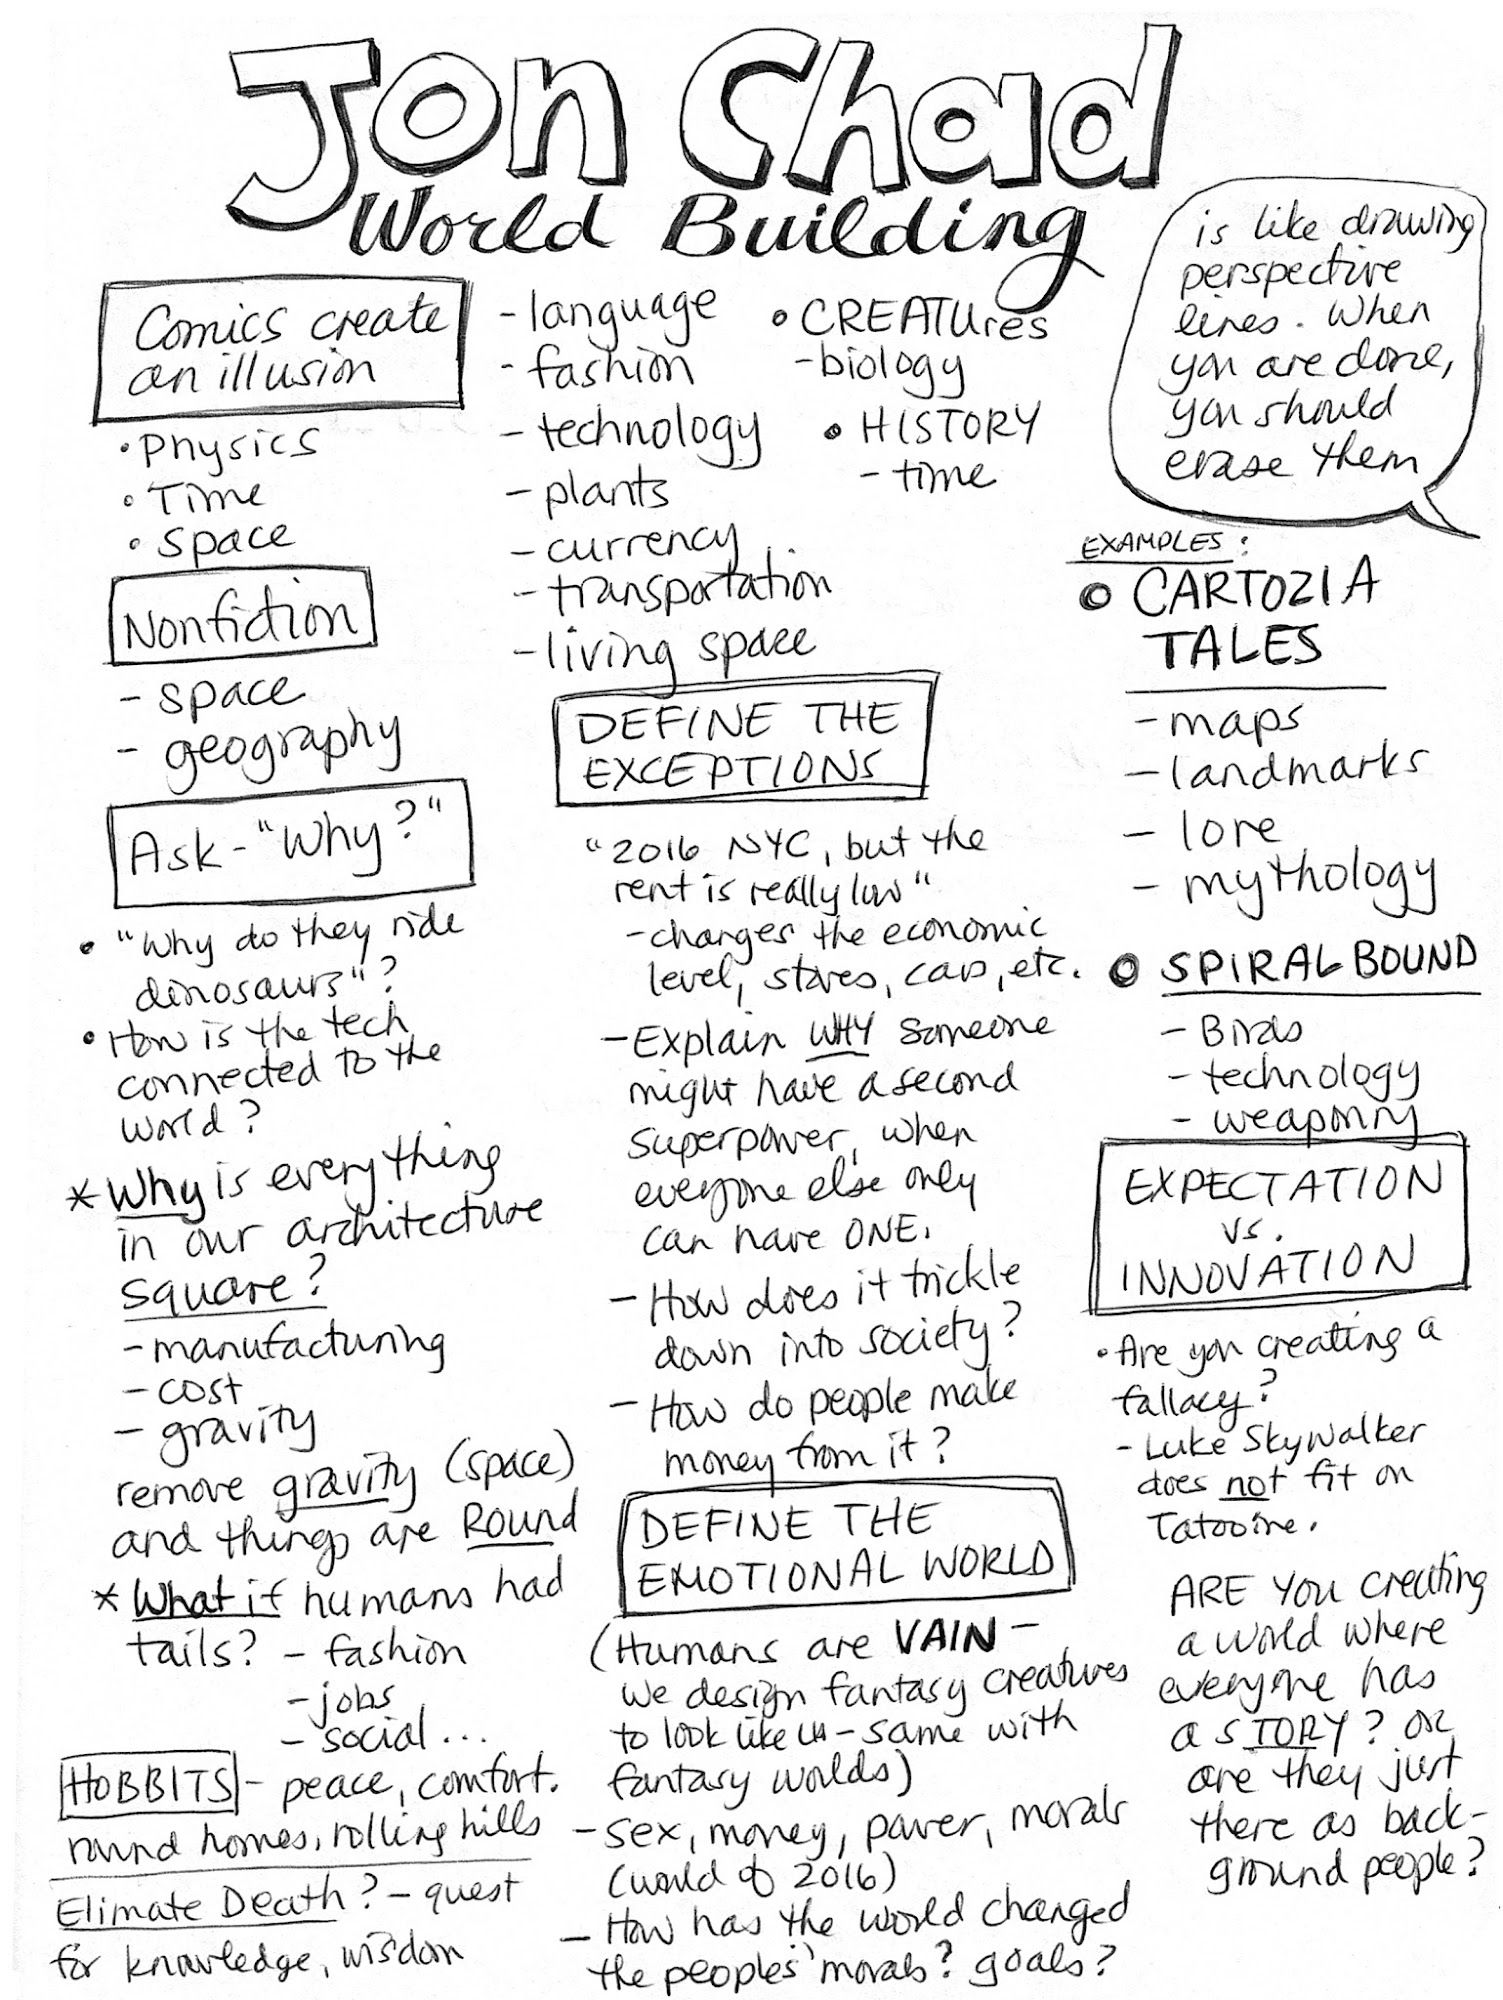 Jon Chad
World Building
is like drawing
perspective
lines. When
you are done,
you should
erase them
Comics create
an illusion
• Physics
• Time
• space
Nonfiction
- space
- geography
Ask - "Why?"
• "Why do they ride
dinosaurs"?
• How is the tech
connected to the
world?
* Why is everything
in our architecture
square?
- manufacturing
- cost
- gravity
remove gravity (space)
and things are ROUND
* What if humans had
tails? - fashion
- jobs
- social...
HOBBITS - peace, comfort.
round homes, rolling hills
Elimate Death? - quest
for knowledge, wisdom
- language
- fashion
- technology
- plants
- currency
- transportation
- living space
• CREATUres
- biology
• HISTORY
- time
DEFINE THE
EXCEPTIONS
"2016 NYC, but the
rent is really low"
- changes the economic
level, stores, cars, etc.
- Explain WHY someone
might have a second
superpower, when
everyone else only
can have ONE.
- How does it trickle
down into society?
- How do people make
money from it?
DEFINE THE
EMOTIONAL WORLD
(Humans are VAIN -
we design fantasy creatures
to look like us - same with
fantasy worlds)
- sex, money, power, morals
(world of 2016)
- How has the world changed
the peoples' morals? goals?
EXAMPLES:
• CARTOZIA
TALES
- maps
- landmarks
- lore
- mythology
• SPIRAL BOUND
- Birds
- technology
- weaponry
EXPECTATION
vs.
INNOVATION
• Are you creating a
fallacy?
- Luke Skywalker
does not fit on
Tatooine.
ARE YOU creating
a world where
everyone has
a STORY? or
are they just
there as back-
ground people?